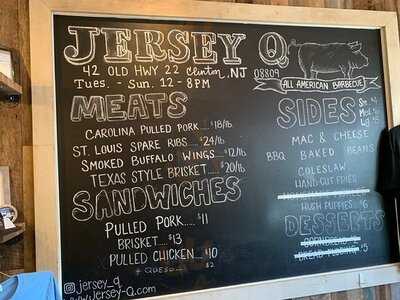 JERSEY Q
42 OLD HWY 22 Clinton, NJ 08809
Tues. - Sun. 12-8PM
ALL AMERICAN BARBECUE
MEATS
CAROLINA PULLED PORK...$18/lb
ST. LOUIS SPARE RIBS...$24/lb
SMOKED BUFFALO WINGS...$12/lb
TEXAS STYLE BRISKET...$20/lb
SANDWICHES
PULLED PORK....$11
BRISKET....$13
PULLED CHICKEN...$10
+ QUESO $2
jersey_q
www.Jersey-Q.com
SIDES
MAC & CHEESE
BBQ BAKED BEANS
COLESLAW
HAND CUT FRIES
HUSH PUPPIES...$6
DESSERTS
CORNBREAD
BREAD PUDDING $5